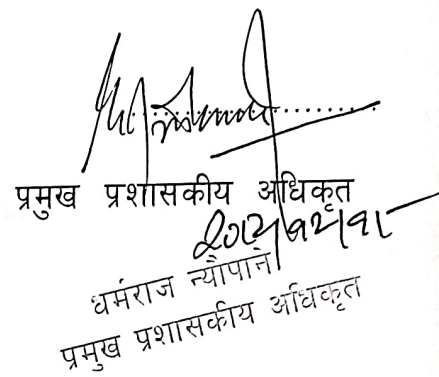 प्रमुख प्रशासकीय अधिकृत
धर्मराज न्यौपाने
प्रमुख प्रशासकीय अधिकृत